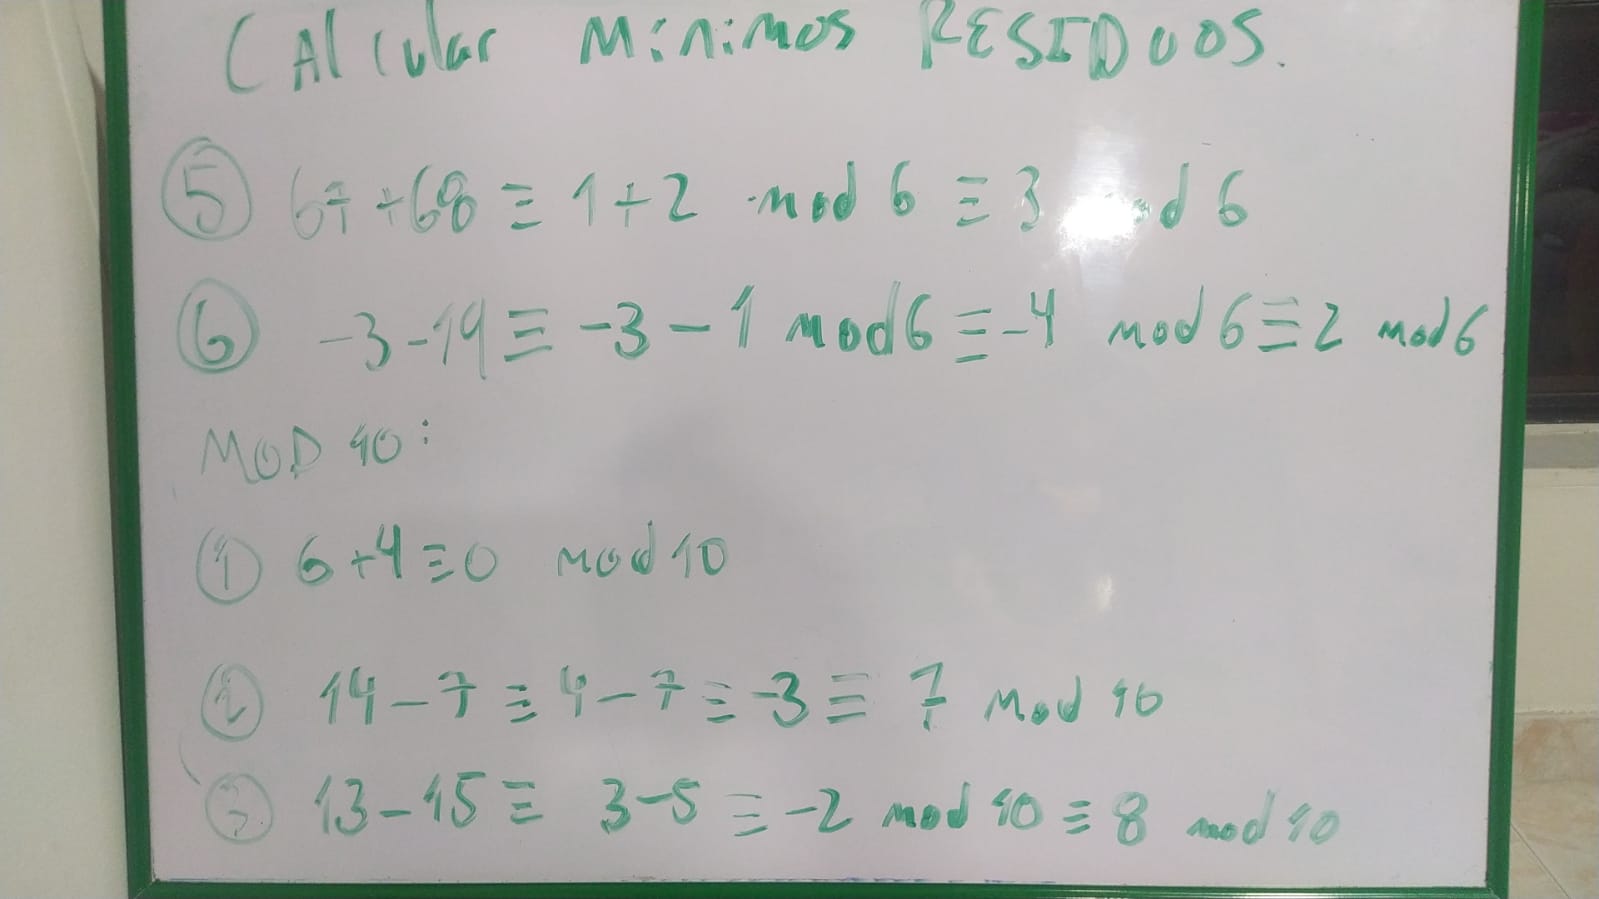 CAlcular Mínimos RESIDUOS.
⑤ 67+68 ≡ 1+2 mod 6 ≡ 3 mod 6
⑥ -3-19 ≡ -3-1 mod 6 ≡ -4 mod 6 ≡ 2 mod 6
MOD 10:
① 6+4 ≡ 0 mod 10
② 14-7 ≡ 4-7 ≡ -3 ≡ 7 mod 10
③ 13-15 ≡ 3-5 ≡ -2 mod 10 ≡ 8 mod 10